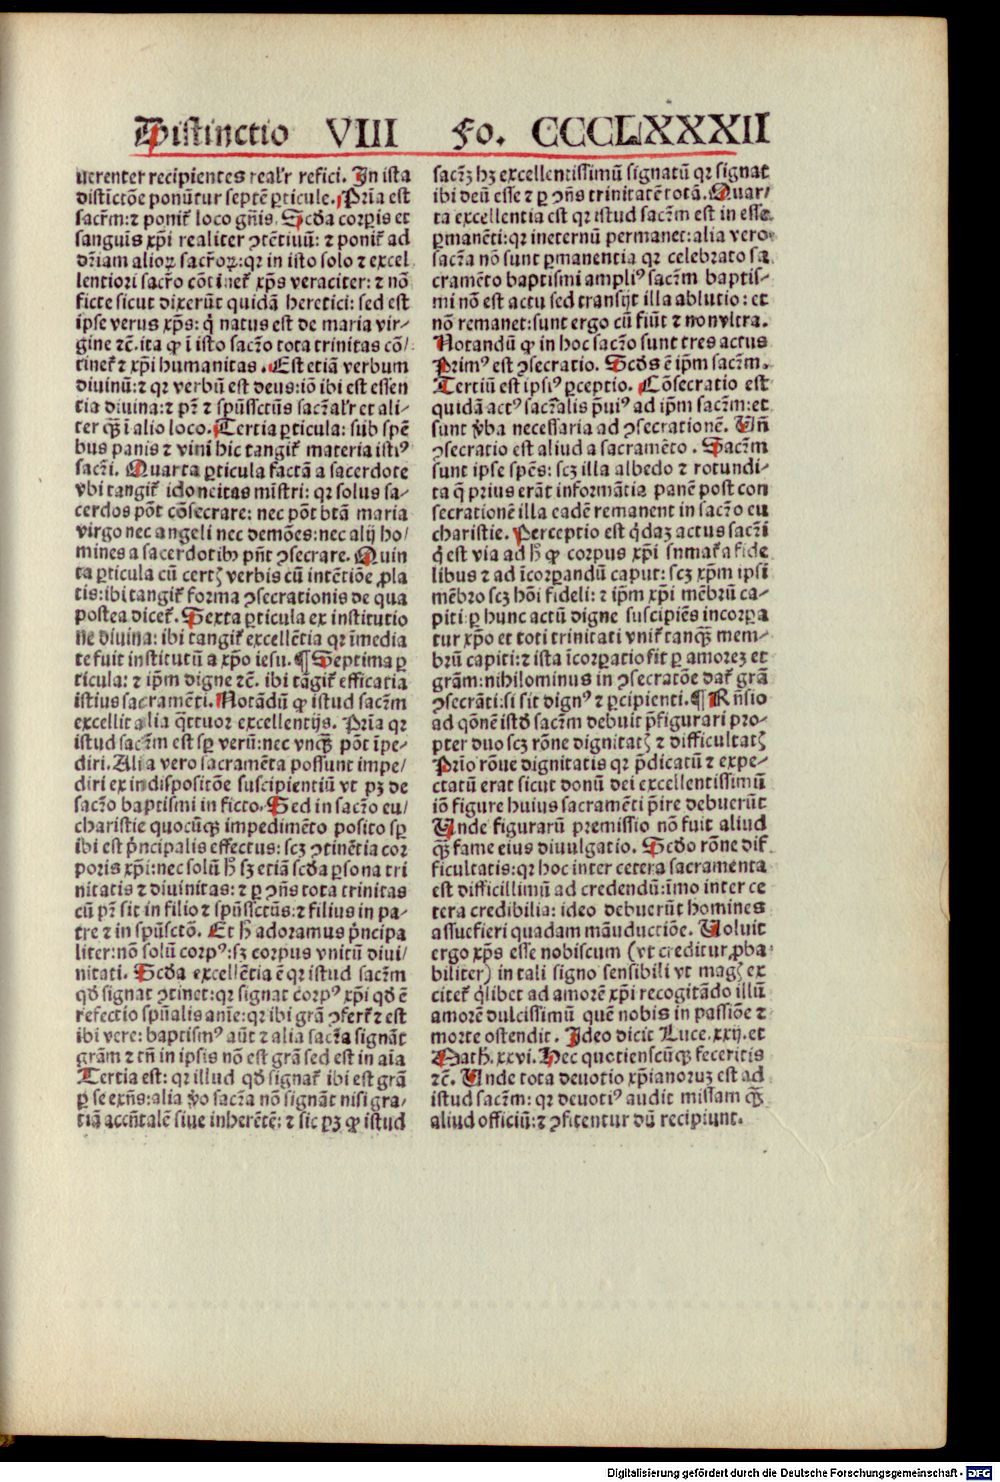 Distinctio VIII Fo. CCCCLXXXII
uerenter recipientes realr̃ refici. In ista
distictõe ponũtur septẽ ꝑticule. Pria est
sacr̃m: ⁊ poniť loco gñis. Scďa corꝑis et
sanguĩs xp̃i realiter ↄtẽtiuũ: ⁊ poniť ad
dr̃iam alioꝝ sacr̃oꝝ: qꝛ in isto solo ⁊ excel
lentiori sacr̃o cõtineť xp̃s veraciter: ⁊ nõ
ficte sicut dixerũt quidã heretici: sed est
ipse verus xp̃s: q̇ natus est de maria vir-
gine ⁊c̃. ita ꝙ ĩ isto sacr̃o tota trinitas cõ/
tineť ⁊ xp̃i humanitas. Est etiã verbum
diuinũ: ⁊ qꝛ verbũ est deus: iõ ibi est essen
tia diuina: ⁊ pr̃ ⁊ sp̃ussctũs sacr̃alr̃ et ali-
ter qꝫ̃ ĩ alio loco. Tertia ꝑticula: sub spẽ
bus panis ⁊ vini hic tangiť materia istiꝰ
sacr̃i. Quarta ꝑticula factã a sacerdote
vbi tangiť idoneitas mĩstri: qꝛ solus sa-
cerdos põt cõsecrare: nec põt btã maria
virgo nec angeli nec demões: nec alij ho/
mines a sacerdotibꝫ pñt ↄsecrare. Quin
ta ꝑticula cũ certꝭ verbis cũ intẽtiõe ꝓla
tis: ibi tangiť forma ↄsecrationis de qua
postea diceť. Sexta ꝑticula ex institutio
ne diuina: ibi tangiť excellẽtia qꝛ ĩmedia
te fuit institutũ a xp̃o iesu. ¶ Septima ꝑ
ticula: ⁊ ip̃m digne ⁊c̃. ibi tãgiť efficatia
istius sacramẽti. Notãdũ ꝙ istud sacr̃m
excellit alia q̃ttuor excellentijs. Pria qꝛ
istud sacr̃m est sꝑ verũ: nec vnqꝫ̃ põt ĩpe-
diri. Alia vero sacramẽta possunt impe/
diri ex indispositõe suscipientiũ vt pꝫ de
sacr̃o baptismi in ficto. Sed in sacr̃o eu/
charistie quocũqꝫ impedimẽto posito sꝑ
ibi est p̃ncipalis effectus: scꝫ ↄtinẽtia cor
poris xp̃i: nec solũ ħ sꝫ etiã scďa ꝑsona tri
nitatis ⁊ diuinitas: ⁊ ꝑ ↄñs tota trinitas
cũ pr̃ sit in filio ⁊ sp̃ussctũs: ⁊ filius in pa-
tre ⁊ in sp̃usctõ. Et ħ adoramus p̃ncipa
liter: nõ solũ corpꝰ: sꝫ corpus vnitũ diui/
nitati. Scďa excellẽtia ẽ qꝛ istud sacr̃m
qď signat ↄtinet: qꝛ signat corpꝰ xp̃i qď ẽ
refectio spũalis anĩe: qꝛ ibi grã ↄferť ⁊ est
ibi vere: baptismꝰ aũt ⁊ alia sacr̃a signãt
grãm ⁊ tñ in ipsis nõ est grã sed est in aĩa
Tertia est: qꝛ illud qď signať ibi est grã
ꝑ se exñs: alia ṽo sacr̃a nõ signãt nisi gra-
tiã accñtalẽ siue inherẽtẽ: ⁊ sic pꝫ ꝙ istud
sacr̃ꝫ hꝫ excellentissimũ signatũ qꝛ signat
ibi deũ esse ⁊ ꝑ ↄñs trinitatẽ totã. Quar/
ta excellentia est qꝛ istud sacr̃m est in esse
ꝑmanẽti: qꝛ ineternũ permanet: alia vero
sacr̃a nõ sunt ꝑmanentia qꝛ celebrato sa
cramẽto baptismi ampliꝰ sacr̃m baptis-
mi nõ est actu sed transijt illa ablutio: et
nõ remanet: sunt ergo cũ fiũt ⁊ non vltra.
Notandũ ꝙ in hoc sacr̃o sunt tres actus
Primꝰ est ↄsecratio. Scďs ẽ ip̃m sacr̃m.
Tertiũ est ipsiꝰ ꝑceptio. Cõsecratio est
quidã actꝰ sacr̃alis p̃uiꝰ ad ip̃m sacr̃m: et
sunt ṽba necessaria ad ↄsecrationẽ. Vñ
ↄsecratio est aliud a sacramẽto. Sacr̃m
sunt ipse spẽs: scꝫ illa albedo ⁊ rotundi-
ta q̃ prius erãt informãtia panẽ post con
secrationẽ illa eadẽ remanent in sacr̃o eu
charistie. Perceptio est q̇daꝫ actus sacr̃i
q̇ est via ad ħ ꝙ corpus xp̃i sumať a fide
libus ⁊ ad ĩcorꝑandũ caput: scꝫ xp̃m ipsi
mẽbro scꝫ hõi fideli: ⁊ ip̃m xp̃i mẽbrũ ca-
piti: ꝑ hunc actũ digne suscipiẽs incorꝑa
tur xp̃o et toti trinitati vniť tanqꝫ̃ mem-
brũ capiti: ⁊ ista ĩcorꝑatio fit ꝑ amoreꝫ et
grãm: nihilominus in ↄsecratõe dať grã
ↄsecrãti: si sit dignꝰ ⁊ ꝑcipienti. ¶ Rñsio
ad qõnẽ istď sacr̃m debuit p̃figurari pro-
pter duo scꝫ rõne dignitatꝭ ⁊ difficultatꝭ
Prĩo rõne dignitatis qꝛ p̃dicatũ ⁊ expe-
ctatũ erat sicut donũ dei excellentissimũ
iõ figure huius sacramẽti p̃ire debuerũt
Unde figurarũ premissio nõ fuit aliud
qꝫ̃ fame eius diuulgatio. Scďo rõne dif
ficultatis: qꝛ hoc inter cetera sacramenta
est difficillimũ ad credendũ: ĩmo inter ce
tera credibilia: ideo debuerũt homines
assuefieri quadam mãuductiõe. Voluit
ergo xp̃s esse nobiscum (vt creditur ꝓba
biliter) in tali signo sensibili vt magꝭ ex
citeť q̇libet ad amorẽ xp̃i recogitãdo illũ
amorẽ dulcissimũ quẽ nobis in passiõe ⁊
morte ostendit. Ideo dicit Luce. xxij. et
Math. xxvi. Hec quotienscũqꝫ feceritis
⁊c̃. Unde tota deuotio xp̃ianoruꝫ est ad
istud sacr̃m: qꝛ deuotiꝰ audit missam qꝫ̃
aliud officiũ: ⁊ ↄfitentur dũ recipiunt.
Digitalisierung gefördert durch die Deutsche Forschungsgemeinschaft - DFG